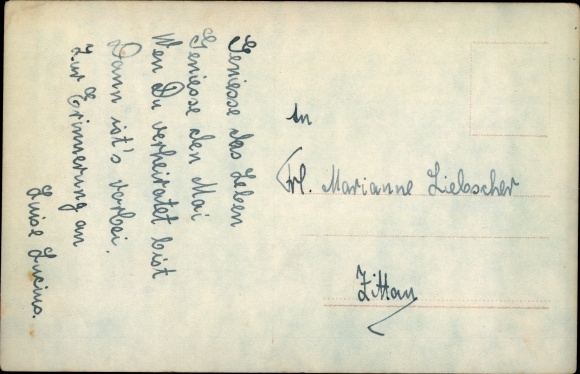 Geniesse das Leben
Geniesse den Mai
Wen Du verheiratet bist
Dann ist's vorbei.
Zur Erinnerung an
Luise Lucius.
An
Frl. Marianne Liebscher
Zittau